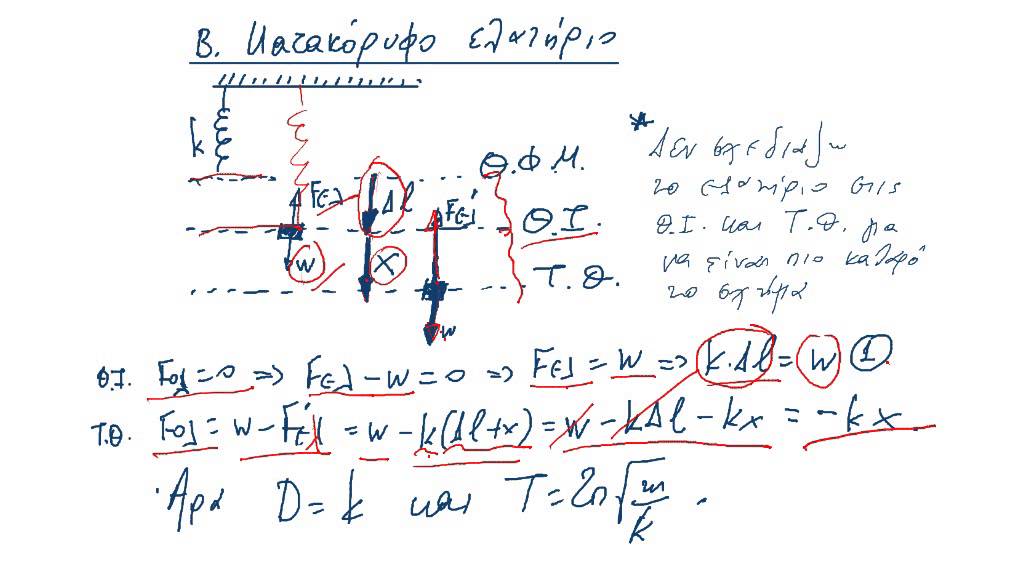 Β. Κατακόρυφο ελατήριο
k
Fελ
Δl
Fελ'
w
x
w
Θ.Φ.Μ.
Θ.Ι.
Τ.Θ.
* Δεν σχεδιάζω
το ελατήριο στις
Θ.Ι. και Τ.Θ. για
να είναι πιο καθαρό
το σχήμα
Θ.Ι. Fολ = 0 => Fελ - w = 0 => Fελ = w => k·Δl = w ①
Τ.Θ. Fολ = w - Fελ' = w - k(Δl + x) = w - kΔl - kx = -kx
Άρα D = k και T = 2π√(m/k).